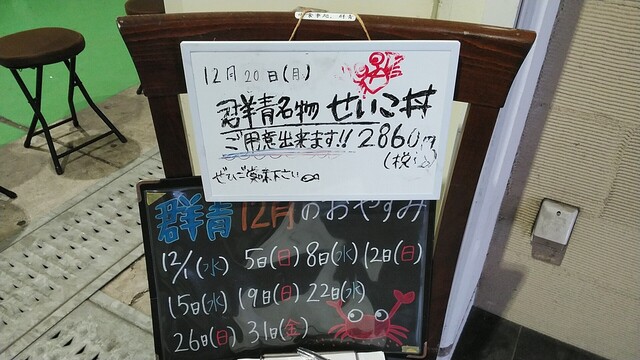 12月20日(月)
群青名物 せいこ丼
ご用意出来ます!! 2860円
(税込)
ぜひご賞味下さい
群青 12月のおやすみ
12/1(水) 5日(日) 8日(水) 12日(日)
15日(水) 19日(日) 22日(水)
26日(日) 31日(金)